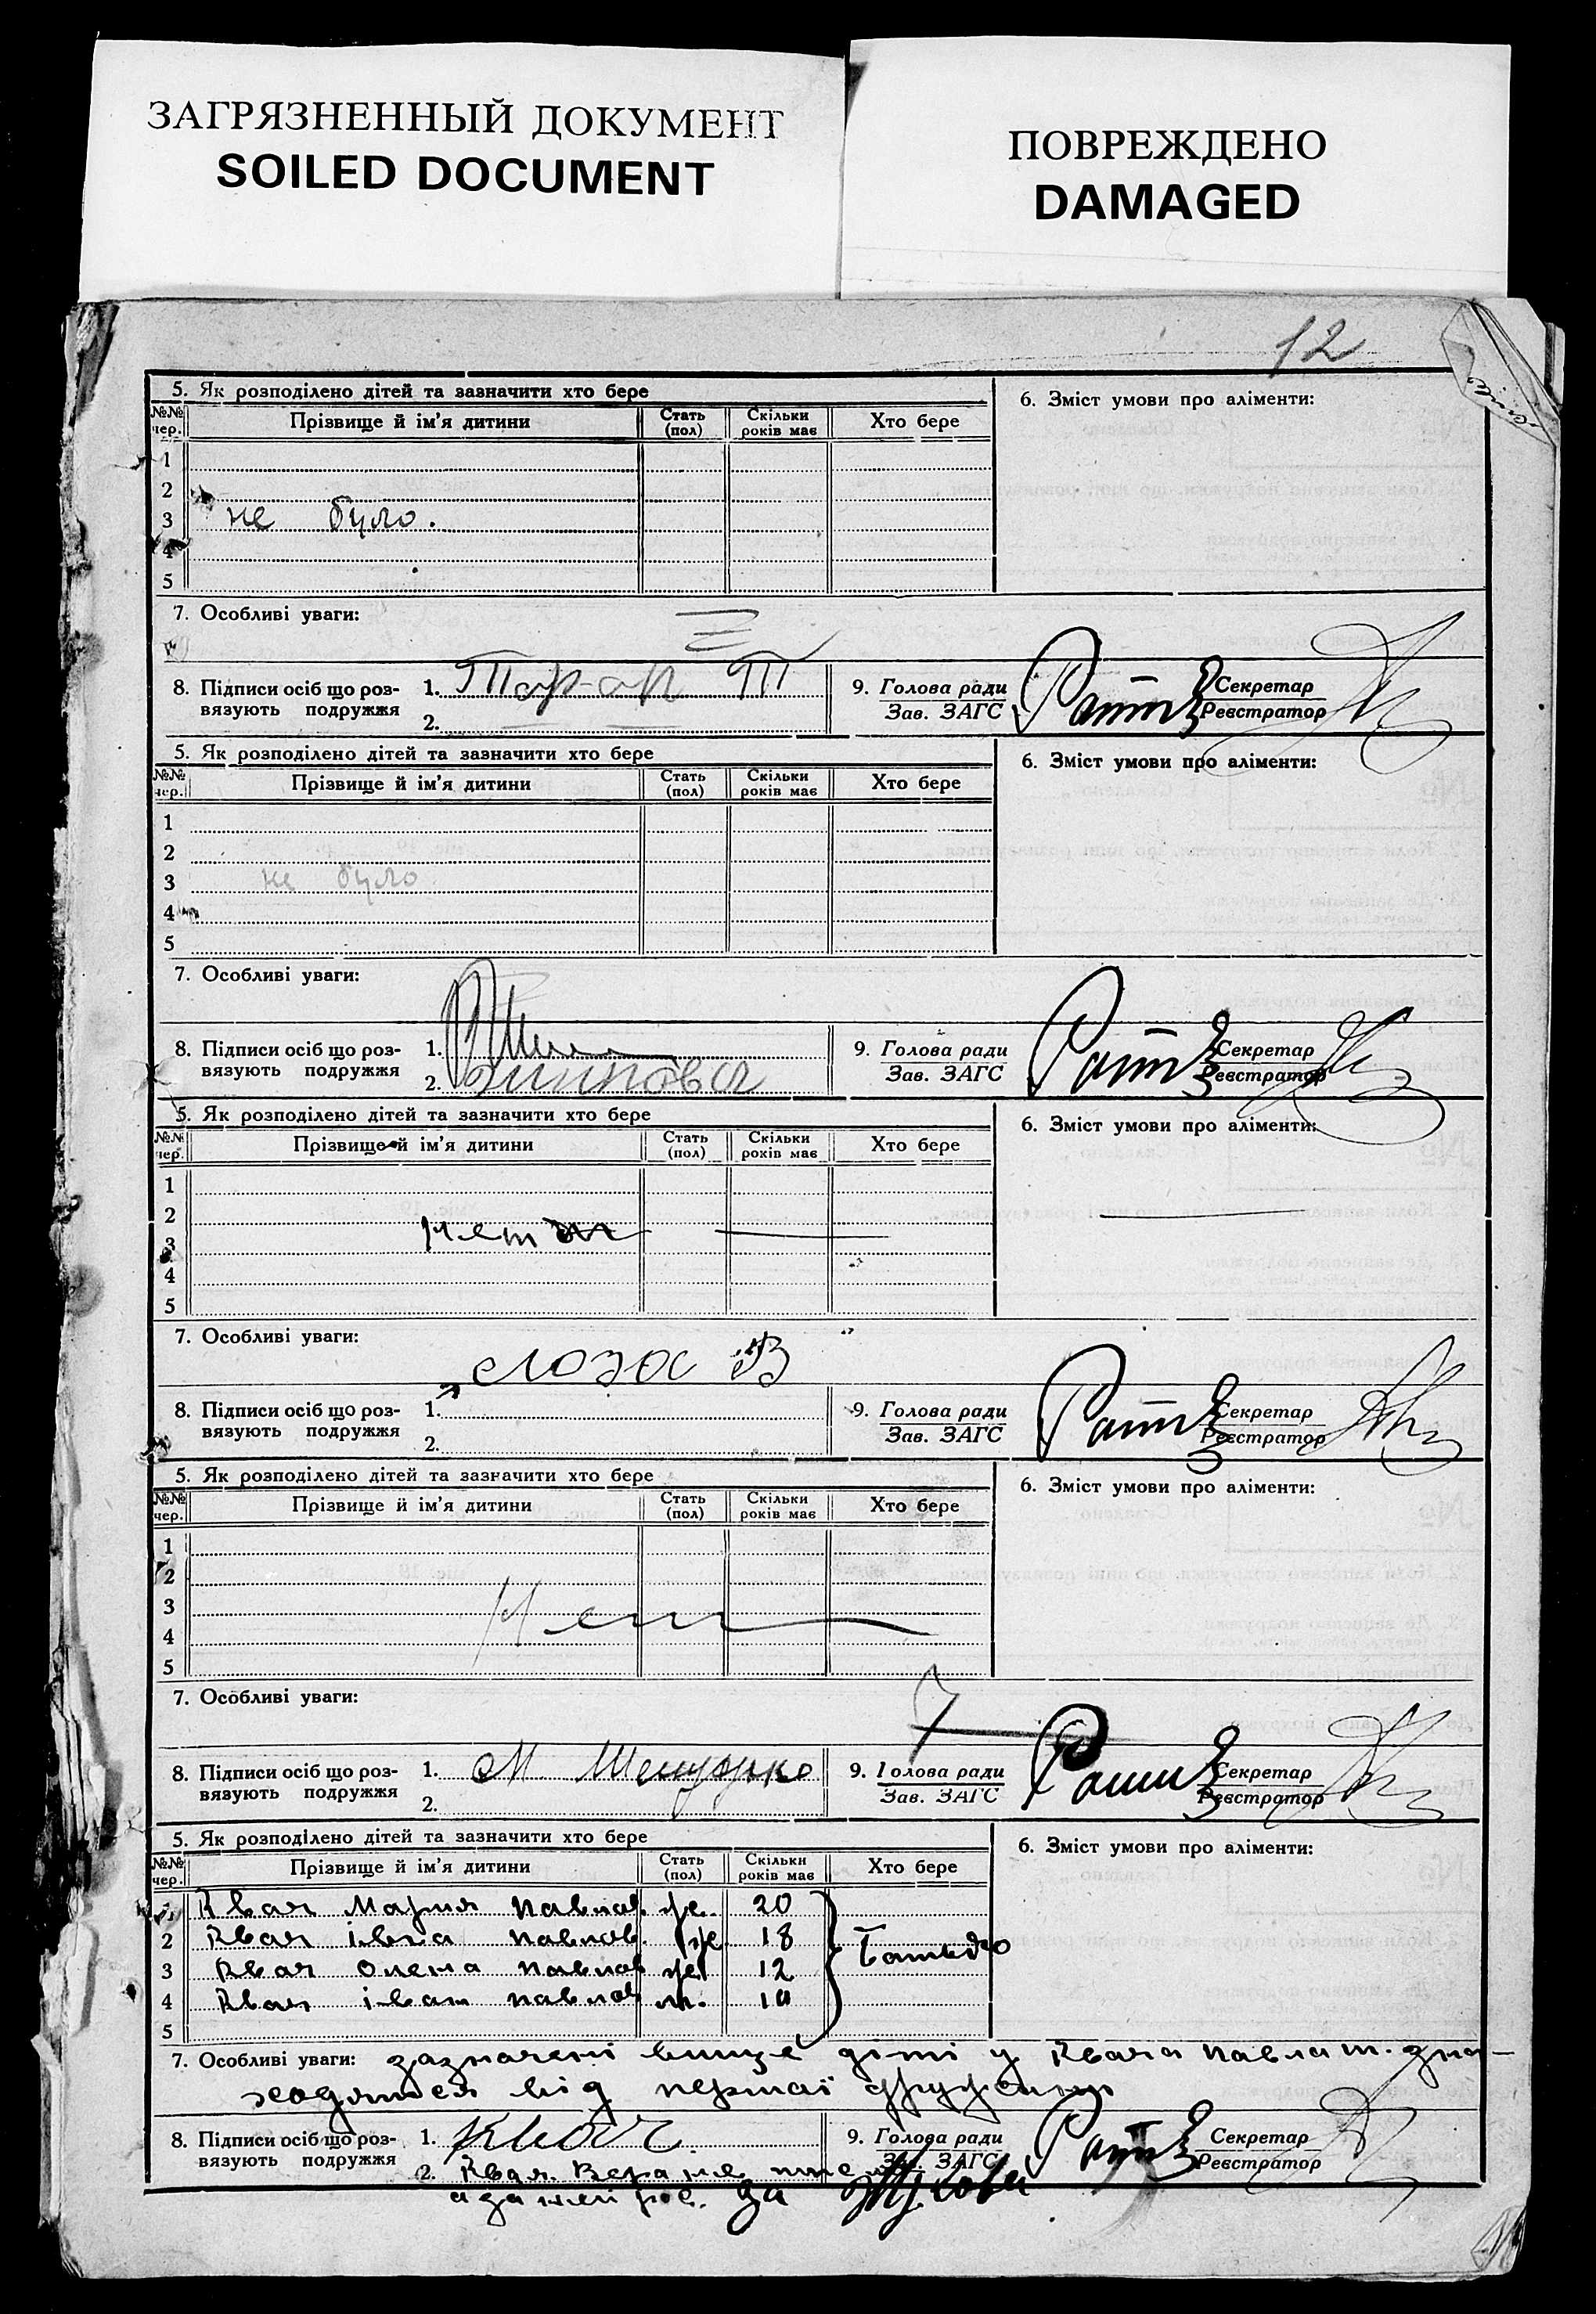 ЗАГРЯЗНЕННЫЙ ДОКУМЕНТ
SOILED DOCUMENT
ПОВРЕЖДЕНО
DAMAGED
12
5. Як розподілено дітей та зазначити хто бере
6. Зміст умови про аліменти:
№№ чер. Прізвище й ім'я дитини Стать (пол) Скільки років має Хто бере
1
2
3 не було.
4
5
7. Особливі уваги:
8. Підписи осіб що роз-вязують подружжя 1.
2.
9. Голова ради Зав. ЗАГС Секретар Реєстратор
5. Як розподілено дітей та зазначити хто бере
6. Зміст умови про аліменти:
№№ чер. Прізвище й ім'я дитини Стать (пол) Скільки років має Хто бере
1
2
3 не було
4
5
7. Особливі уваги:
8. Підписи осіб що роз-вязують подружжя 1.
2.
9. Голова ради Зав. ЗАГС Секретар Реєстратор
5. Як розподілено дітей та зазначити хто бере
6. Зміст умови про аліменти:
№№ чер. Прізвище й ім'я дитини Стать (пол) Скільки років має Хто бере
1
2
3
4
5
7. Особливі уваги:
Лоза В
8. Підписи осіб що роз-вязують подружжя 1.
2.
9. Голова ради Зав. ЗАГС Секретар Реєстратор
5. Як розподілено дітей та зазначити хто бере
6. Зміст умови про аліменти:
№№ чер. Прізвище й ім'я дитини Стать (пол) Скільки років має Хто бере
1
2
3 Нет
4
5
7. Особливі уваги:
8. Підписи осіб що роз-вязують подружжя 1. М
2.
9. Голова ради Зав. ЗАГС Секретар Реєстратор
5. Як розподілено дітей та зазначити хто бере
6. Зміст умови про аліменти:
№№ чер. Прізвище й ім'я дитини Стать (пол) Скільки років має Хто бере
1 Квач Мария Павлов. же. 20
2 Квач Івга Павлов. же 18 Батько
3 Квач Олена Павлов же 12
4 Квач Іван Павлов м. 10
5
7. Особливі уваги: зазначені вище діти у Квача Павла зна-
ходяться від першої дружини
8. Підписи осіб що роз-вязують подружжя 1. Квач.
2. Квач Вера не
за
9. Голова ради Зав. ЗАГС Секретар Реєстратор